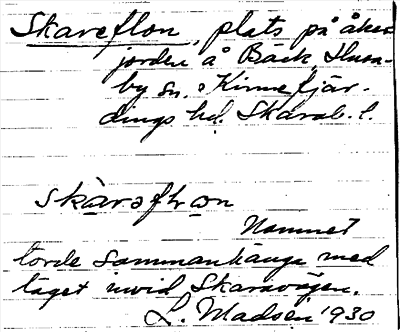 Skareflon, plats på åker-
jorden å Bäck, Husa-
by sn. Kinnefjär-
dings hd. Skarab. l.
skàraflꝏn
Namnet
torde sammanhänga med
läget invid Skaravägen.
L. Madsén 1930